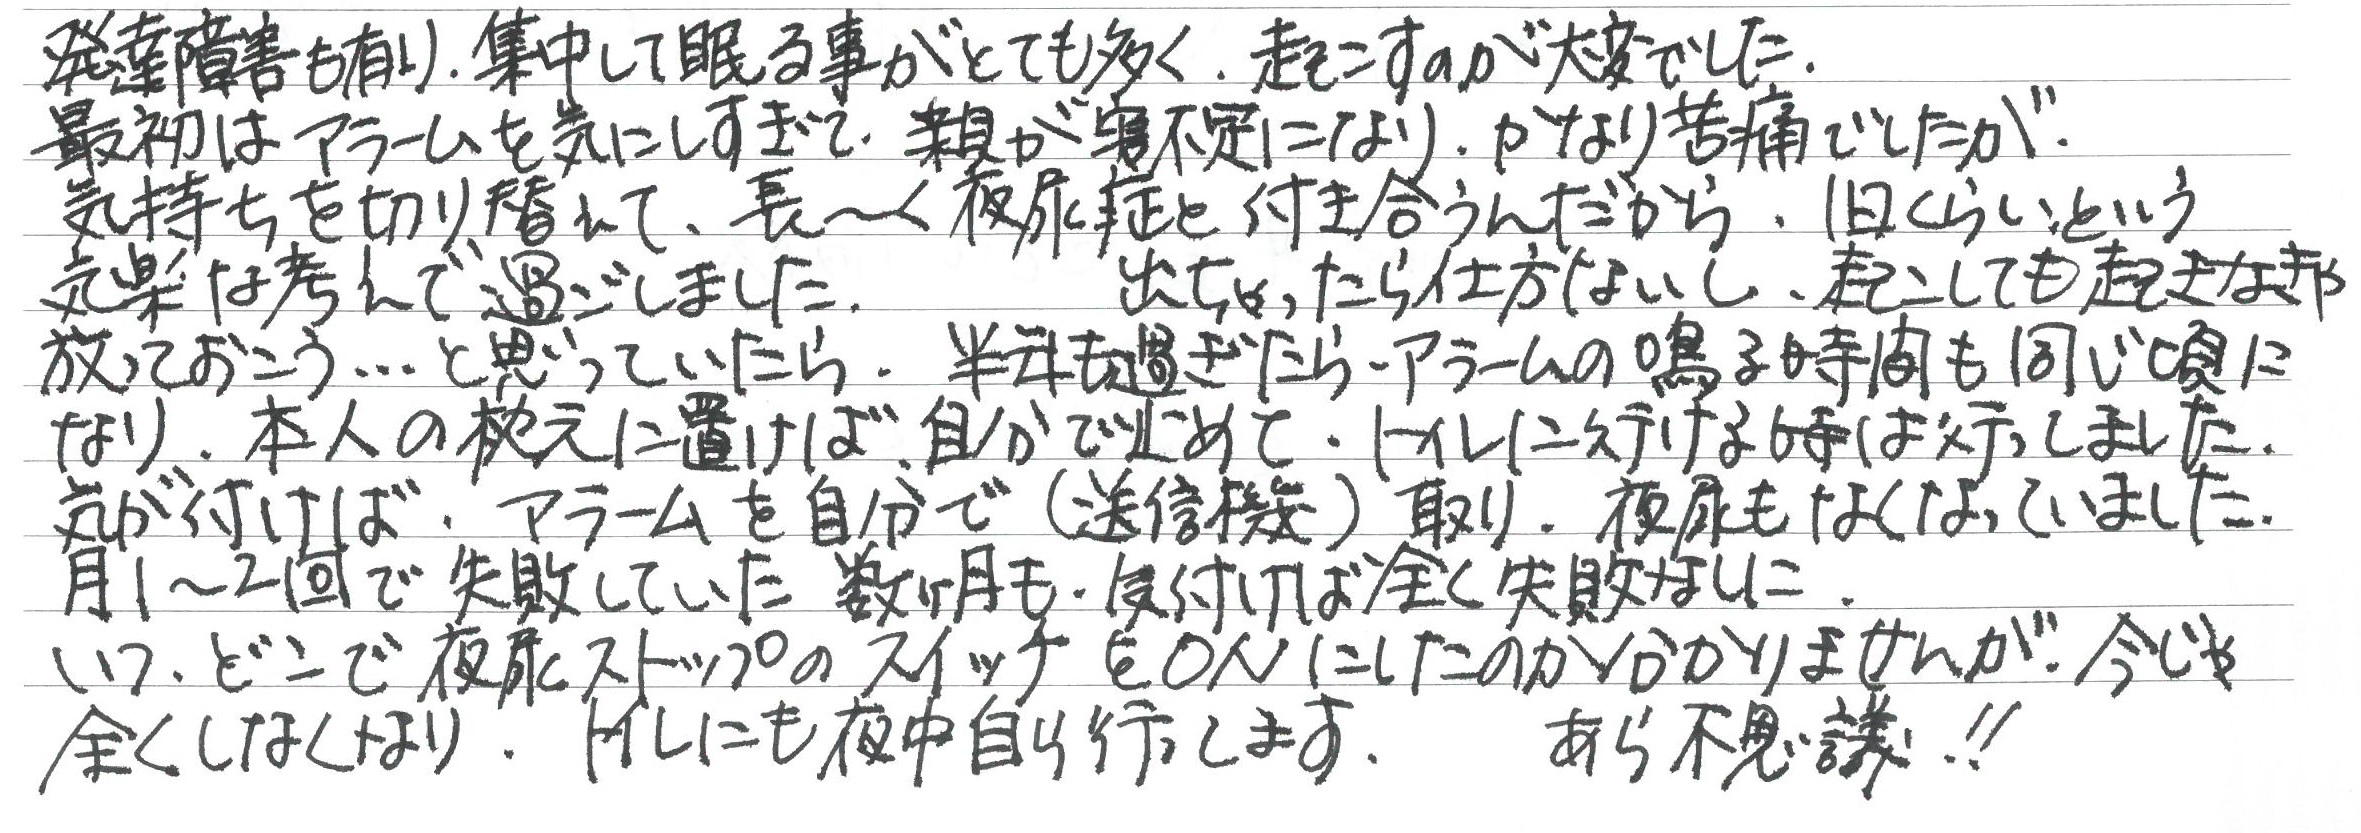 発達障害も有り、集中して眠る事がとても多く、起こすのが大変でした。
最初はアラームを気にしすぎて、親が寝不足になり、かなり苦痛でしたが、
気持ちを切り替えて、長〜く夜尿症と付き合うんだから、1日くらいという
気楽な考えで過ごしました。 出ちゃったら仕方ないし、起こしても起きなきゃ
放っておこう…と思っていたら、半年も過ぎたら、アラームの鳴る時間も同じ頃に
なり、本人の枕元に置けば、自分で止めて、トイレに行ける時は行ってました。
気が付けば、アラームを自分で(送信機)取り、夜尿もなくなっていました。
月1〜2回で失敗していた数ヶ月も、気付けば全く失敗なしに。
いつ、どこで夜尿ストップのスイッチをONにしたのか分かりませんが、今じゃ
全くしなくなり、トイレにも夜中自ら行ってます。 あら不思議!!